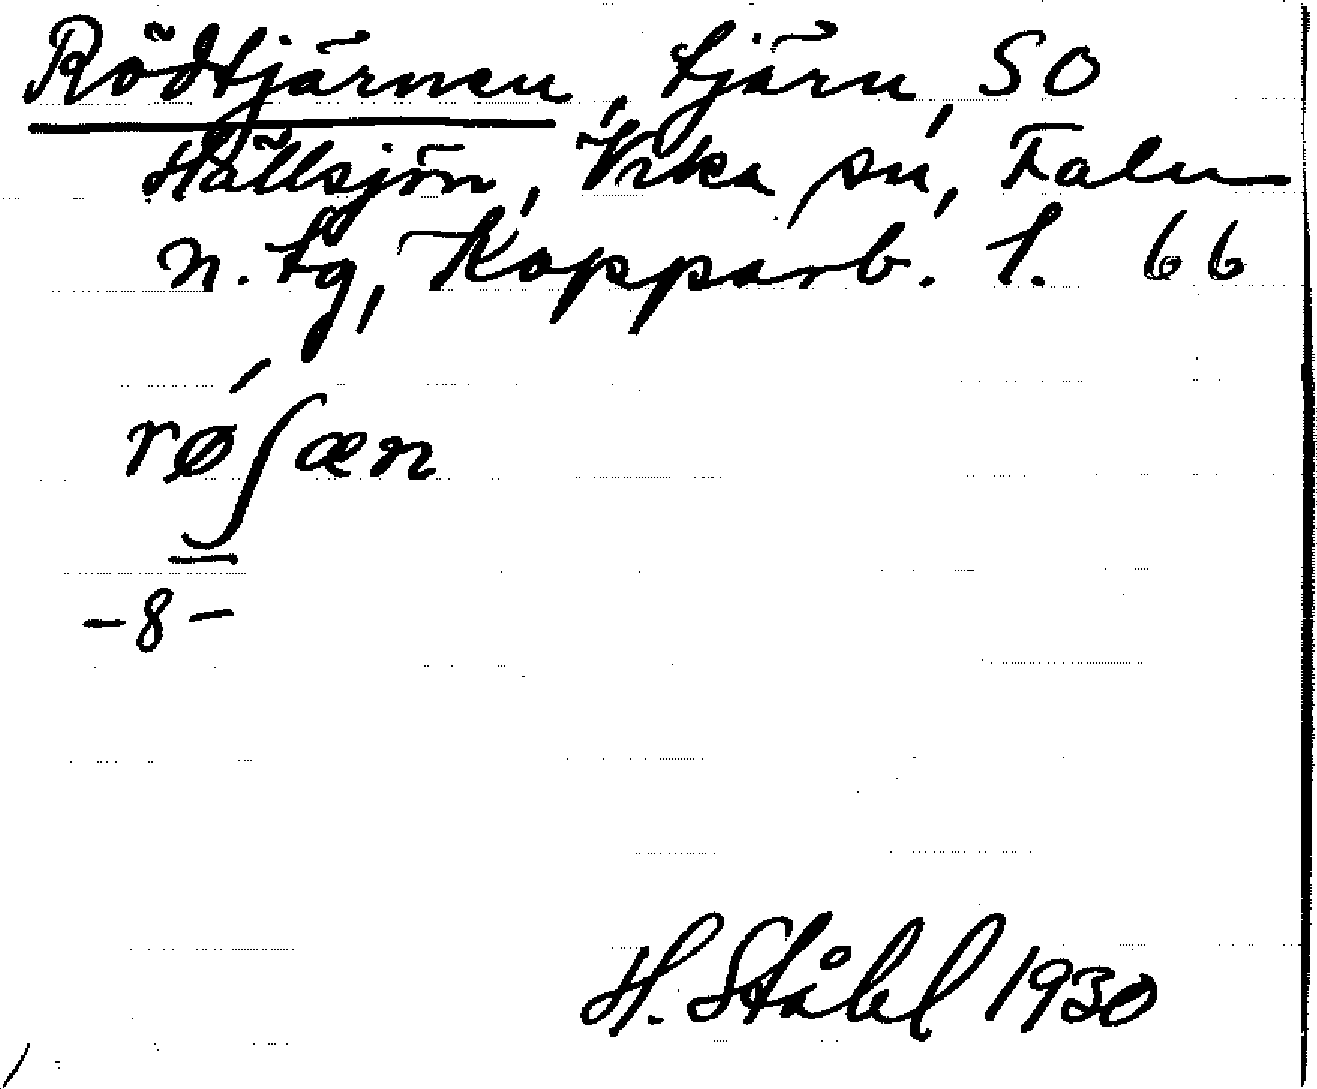 Rödtjärnen, tjärn, SO
Hällsjön, Vika sn, Falu
n. tg, Kopparb. l. 66
røʃæn
-8-
H. Ståhl 1930